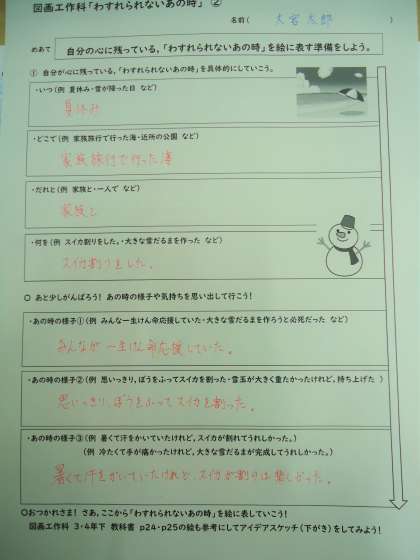 図画工作科「わすれられないあの時」 ②
名前( 大宮太郎 )
めあて 自分の心に残っている,「わすれられないあの時」を絵に表す準備をしよう。
① 自分が心に残っている,「わすれられないあの時」を具体的にしていこう。
・いつ(例 夏休み・雪が降った日 など)
夏休み
・どこで(例 家族旅行で行った海・近所の公園 など)
家族旅行で行った海
・だれと(例 家族と・一人で など)
家族と
・何を(例 スイカ割りをした。・大きな雪だるまを作った など)
スイカ割りをした。
○ あと少しがんばろう! あの時の様子や気持ちを思い出して行こう!
・あの時の様子①(例 みんな一生けん命応援していた・大きな雪だるまを作ろうと必死だった など)
みんなが 一生けん命応援していた。
・あの時の様子②(例 思いっきり,ぼうをふってスイカを割った・雪玉が大きく重たかったけれど,持ち上げた )
思いっきり,ぼうをふってスイカを割った。
・あの時の様子③(例 暑くて汗をかいていたけれど,スイカが割れてうれしかった。)
(例 冷たくて手が痛かったけれど,大きな雪だるまが完成してうれしかった。)
暑くて汗をかいていたけれど,スイカが割り
○おつかれさま! さあ,ここから「わすれられないあの時」を絵に表していこう!
図画工作科 3・4年下 教科書 p24・p25の絵も参考にしてアイデアスケッチ(下がき)をしてみよう!